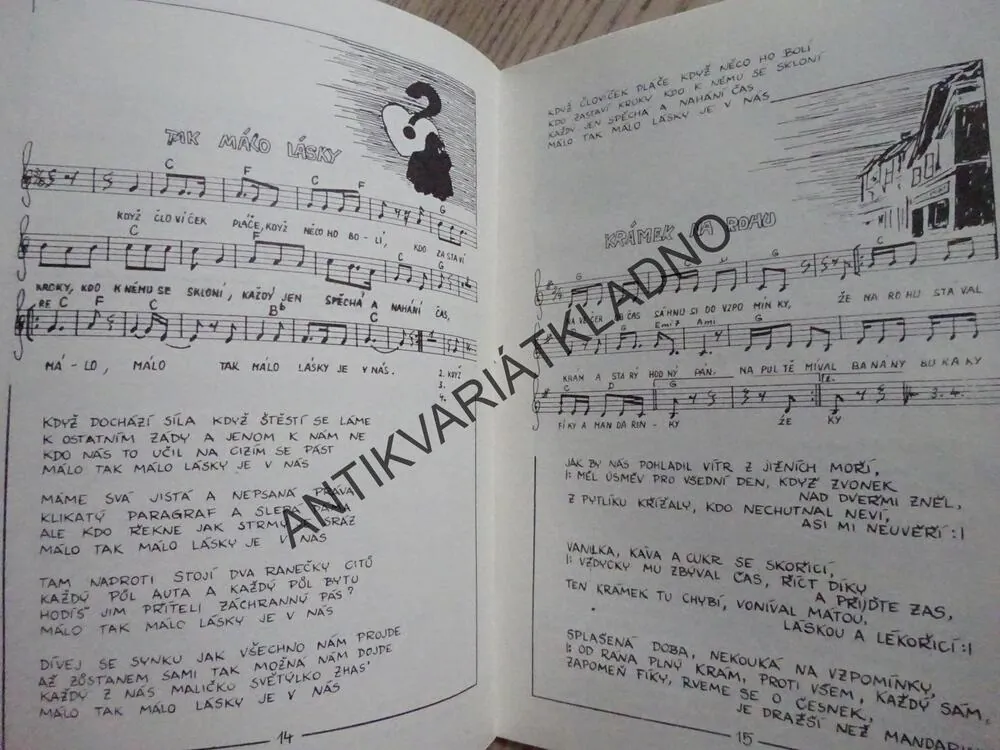 TAK MÁLO LÁSKY
C F C F G
KDYŽ ČLOVÍČEK PLÁČE, KDYŽ NĚCO HO BOLÍ, KDO ZASTAVÍ
C F C G
KROKY, KDO K NĚMU SE SKLONÍ, KAŽDÝ JEN SPĚCHÁ A NAHÁNÍ ČAS,
RF C F C Bb C
MÁ-LO, MÁLO TAK MÁLO LÁSKY JE V NÁS.
2. KDYŽ
3.
4.
KDYŽ DOCHÁZÍ SÍLA KDYŽ ŠTĚSTÍ SE LÁME
K OSTATNÍM ZÁDY A JENOM K NÁM NE
KDO NÁS TO UČIL NA CIZÍM SE PÁST
MÁLO TAK MÁLO LÁSKY JE V NÁS
MÁME SVÁ JISTÁ A NEPSANÁ PRÁVA
KLIKATÝ PARAGRAF A SLEPÁ
ALE KDO ŘEKNE JAK STRMÝ SRÁZ
MÁLO TAK MÁLO LÁSKY JE V NÁS
TAM NAPROTI STOJÍ DVA RANEČKY CITŮ
KAŽDÝ PŮL AUTA A KAŽDÝ PŮL BYTU
HODÍŠ JIM PŘÍTELI ZÁCHRANNÝ PÁS?
MÁLO TAK MÁLO LÁSKY JE V NÁS
DÍVEJ SE SYNKU JAK VŠECHNO NÁM PROJDE
AŽ ZŮSTANEM SAMI TAK MOŽNÁ NÁM DOJDE
KAŽDÝ Z NÁS MALIČKO SVĚTÝLKO ZHAS'
MÁLO TAK MÁLO LÁSKY JE V NÁS
14
KDYŽ ČLOVÍČEK PLÁČE KDYŽ NĚCO HO BOLÍ
KDO ZASTAVÍ KROKY KDO K NĚMU SE SKLONÍ
KAŽDÝ JEN SPĚCHÁ A NAHÁNÍ ČAS
MÁLO TAK MÁLO LÁSKY JE V NÁS
KRÁMEK NA ROHU
G G C
NAVEČER ČAS SÁHNU SI DO VZPOMÍNKY, ŽE NA ROHU STÁVAL
G Emi7 Ami G
KRÁM A STARÝ HODNÝ PÁN. NA PULTĚ MÍVAL BANÁNY BURÁKY
C D G 2. 3.-4.
FÍKY A MANDARIN-KY ŽE KY
JAK BY NÁS POHLADIL VÍTR Z JIŽNÍCH MOŘÍ,
|: MĚL ÚSMĚV PRO VŠEDNÍ DEN, KDYŽ ZVONEK
NAD DVEŘMI ZNĚL,
Z PYTLÍKU KŘÍŽALY, KDO NECHUTNAL NEVÍ,
ASI MI NEUVĚŘÍ :|
VANILKA, KÁVA A CUKR SE SKOŘICÍ,
|: VŽDYCKY MU ZBÝVAL ČAS, ŘÍCT DÍKY
A PŘIJĎTE ZAS,
TEN KRÁMEK TU CHYBÍ, VONÍVAL MÁTOU,
LÁSKOU A LÉKOŘICÍ :|
SPLAŠENÁ DOBA, NEKOUKÁ NA VZPOMÍNKY,
|: OD RÁNA PLNÝ KRÁM, PROTI VŠEM, KAŽDÝ SÁM,
ZAPOMEŇ FÍKY, RVEME SE O ČESNEK,
JE DRAŽŠÍ NEŽ
15
ANTIKVARIÁTKLADNO